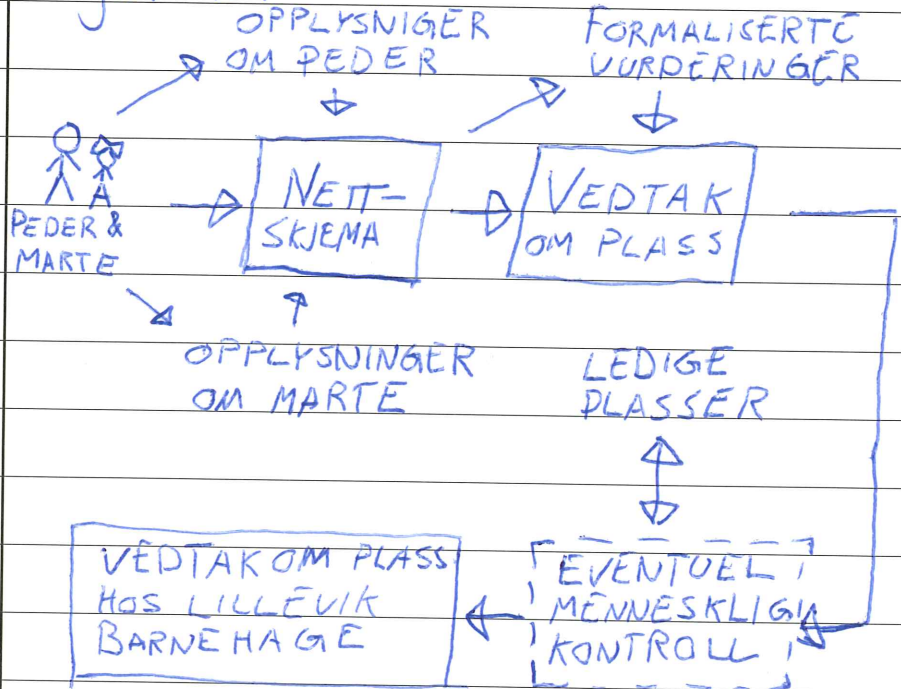 OPPLYSNIGER
OM PEDER
FORMALISERTE
VURDERINGER
PEDER &
MARTE
NETT-
SKJEMA
VEDTAK
OM PLASS
OPPLYSNINGER
OM MARTE
LEDIGE
PLASSER
VEDTAK OM PLASS
HOS LILLEVIK
BARNEHAGE
EVENTUEL
MENNESKLIG
KONTROLL